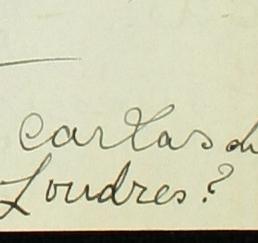 cartas de
Londres?